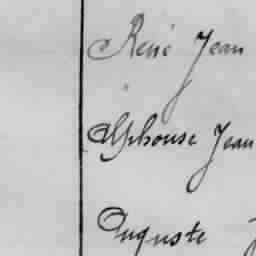 René Jean
Alphonse Jean
Auguste